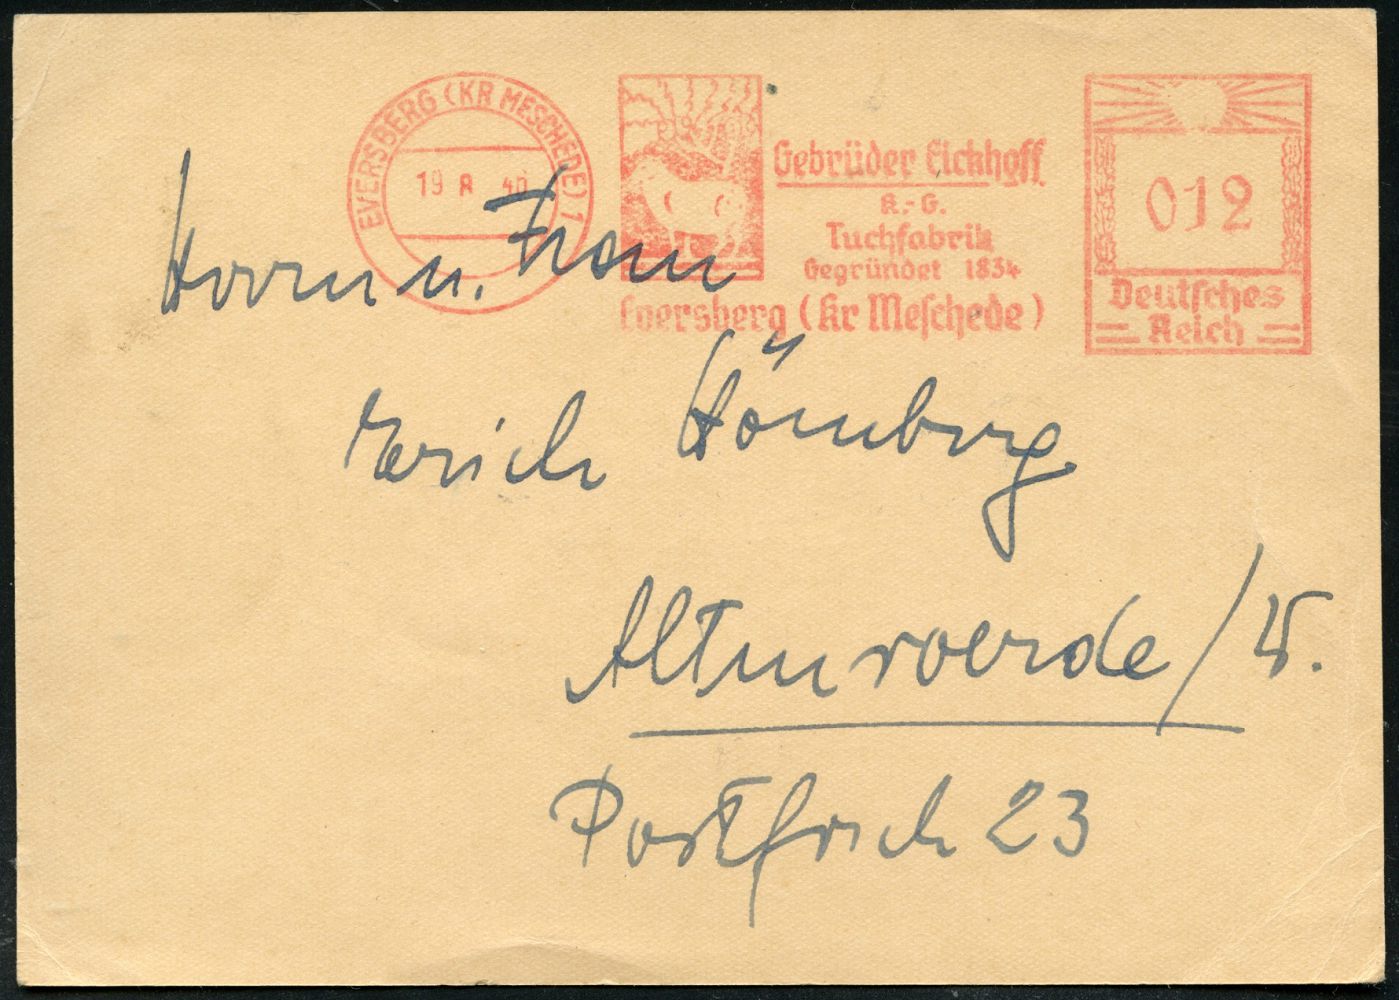 EVERSBERG (KR MESCHEDE) 1
19 8 46
Gebrüder Eickhoff
K.-G.
Tuchfabrik
Gegründet 1834
Eversberg (Kr Meschede)
012
Deutsches
Reich
Herrn u. Frau
Erich Hömberg
Altenvoerde / W.
Postfach 23